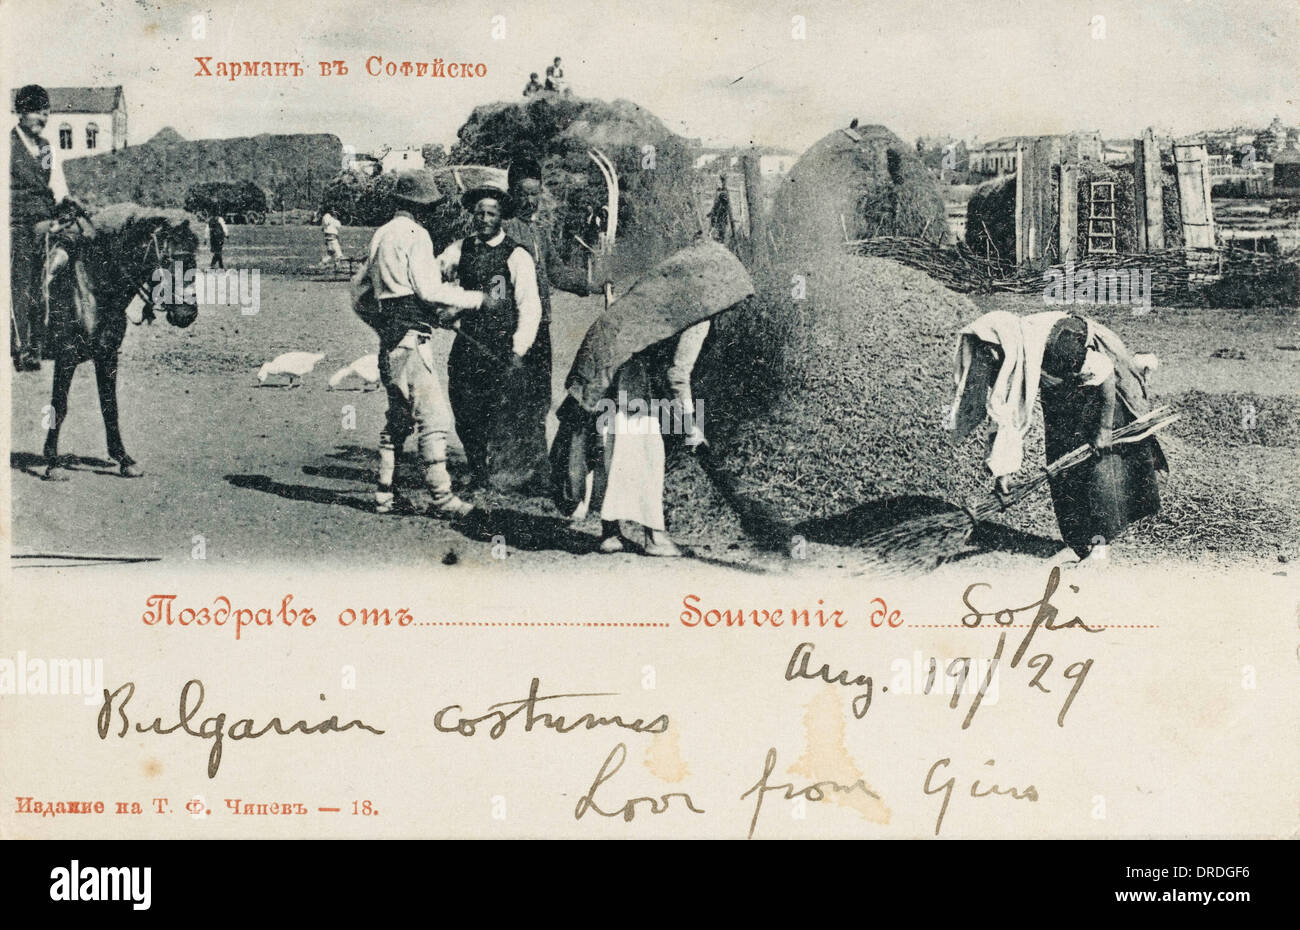 Харманъ въ Софийско
Поздравъ отъ Souvenir de Sofia
Aug. 19/29
Bulgarian costumes
Love from
Издание на Т. Ф. Чипевъ — 18.
alamy
Image ID: DRDGF6
www.alamy.com